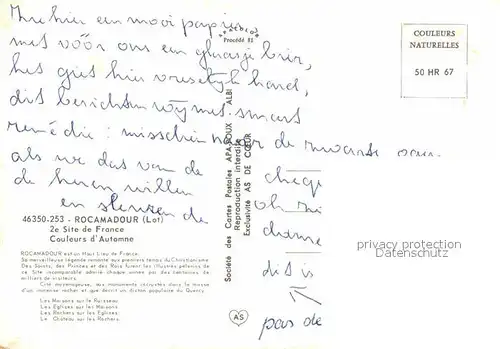 hier een mooi papier
met vóór ons een glaasje bier,
het giet hier vreselijk hard,
dit berichten wij met smart
remédie : misschien naar de
als we dat van de
de heren willen
en de
cheque
oh
dit is
pas de
APACOLOR
Procédé 81
COULEURS
NATURELLES
50 HR 67
Société des Cartes Postales APA-POUX - ALBI
Reproduction interdite
Exclusivité AS DE CŒUR
AS
privacy protection
Datenschutz
46350.253 - ROCAMADOUR (Lot)
2e Site de France
Couleurs d'Automne
ROCAMADOUR est un Haut Lieu de France.
Sa merveilleuse légende remonte aux premiers temps du Christianisme.
Des Saints, des Princes et des Rois furent les illustres pèlerins de
ce Site incomparable admiré chaque année par des centaines de
milliers de visiteurs.
Cité moyenageuse, aux monuments incrustés dans la masse
d'un immense rocher et que décrit un dicton populaire du Quercy
Les Maisons sur le Ruisseau
Les Eglises sur les Maisons
Les Rochers sur les Eglises
Le Château sur les Rochers.